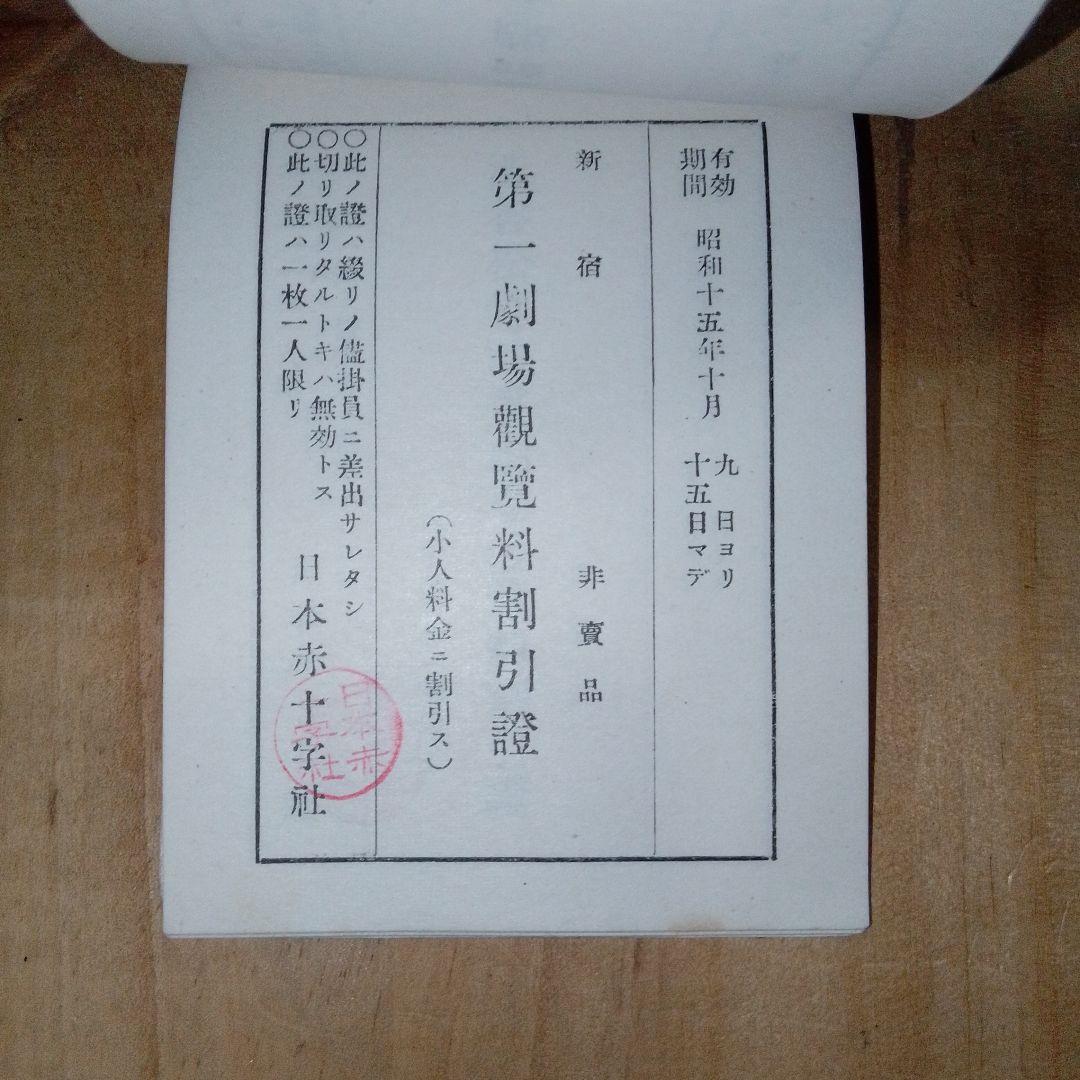 有効期間 昭和十五年十月 九日ヨリ十五日マデ
新宿 非賣品
第一劇場觀覽料割引證
(小人料金ニ割引ス)
○此ノ證ハ綴リノ儘掛員ニ差出サレタシ
○切リ取リタルトキハ無効トス
○此ノ證ハ一枚一人限リ
日本赤十字社
日本赤十字社